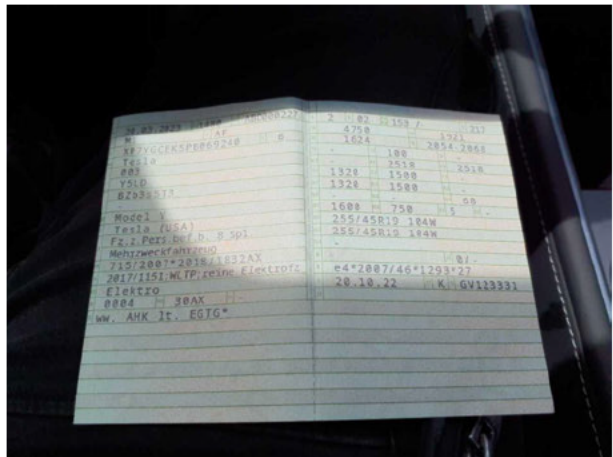 20.03.2023 1480
M AF
6
Tesla
003
Y5LD
-
Model Y
Tesla (USA)
Fz.z.Pers.bef.b. 8 Spl
Mehrzweckfahrzeug
715/2007*2018/1832AX
2017/1151;WLTP;reine Elektrofz
Elektro
0004 30AX -
ww. AHK lt. EGTG*
2 02 150 /- 217
4750 1921
1624 2054-2068
- 100 -
- 2518 - 2518
1320 1500 -
1320 1500 -
1600 750 5 -
255/45R19 104W
255/45R19 104W
-
0/-
e4*2007/46*1293*27
20.10.22 K GV123331